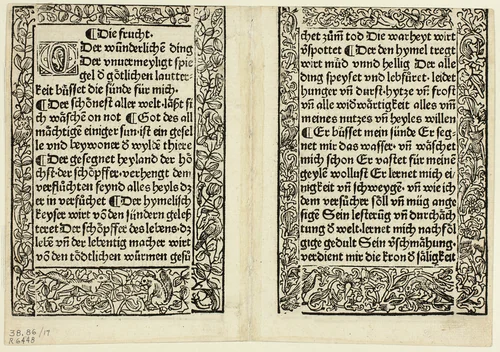 ¶Die frucht.
O Der wünderlichē ding
Der vnuermeyligt spie
gel d̄ götlichen lautter-
keit büsset die sünde für mich.
¶Der schönest aller welt. läßt si
ch wäschē on not ¶Got des all
mächtigē einiger sun. ist ein gesel
le vnd beywoner d̄ wyldē thiere
¶Der gesegnet heyland der hö
chst. der schöpffer. verhengt dem
verflüchten feynd alles heyls dz
er in versüchet ¶Der hymelisch
keyser wirt vō den sündern geles
teret Der schöpffer des lebens. dz
lebē vn̄ der lebentig macher wirt
vō den tödtlichen würmen gesü
chet zům tod Die warheyt wirt
v̄spottet ¶Der den hymel tregt
wirt müd vnnd hellig Der alle
ding speyset vnd lebfüret. leidet
hunger vn̄ durst. hytze vn̄ frost
vn̄ alle widwärtigkeit alles vm̄
meines nutzes vn̄ heyles willen
¶Er büsset mein sünde Er seg-
net mir das wasser. vn̄ wäschet
mich schon Er vastet für meinē
geylē wollust Er lernet mich ei
nigkeit vn̄ schweygē. vn̄ wie ich
dem versücher söll vn̄ müg ange
sigē Sein lesterūg vn̄ durchäch
tung d̄ welt. lernet mich nachföl
gige gedult Sein v̄schmähung.
verdient mir die kron d̄ säligkeit
38.86/17
R6448